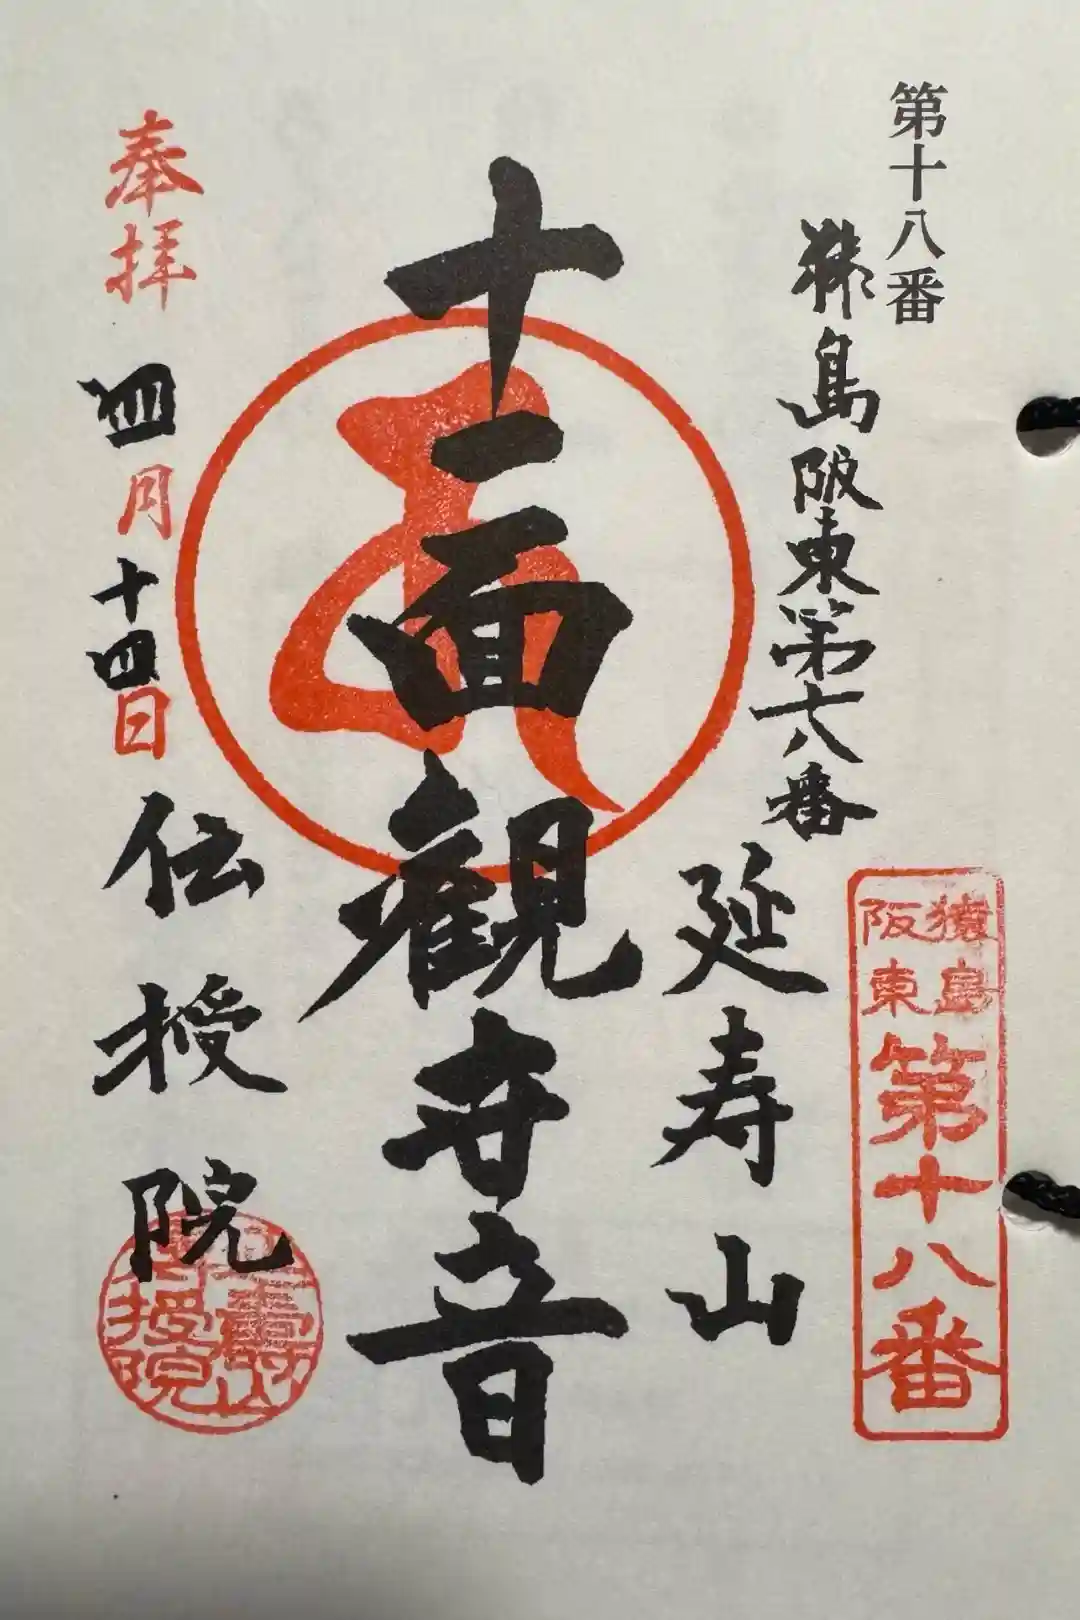 第十八番
猿島阪東第十八番
延寿山
十一面観世音
奉拝
四月十四日
伝授院
猿島
阪東
第十八番
授院